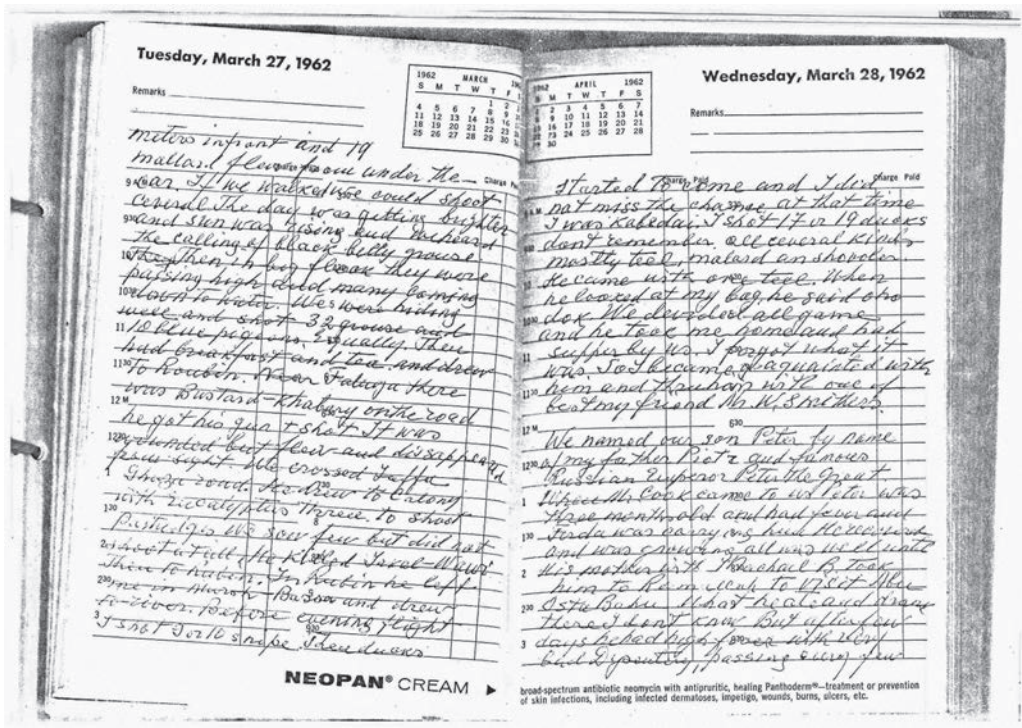 Tuesday, March 27, 1962
Remarks
1962 MARCH
S M T W T F
1 2
4 5 6 7 8 9
11 12 13 14 15 16
18 19 20 21 22 23
25 26 27 28 29 30
Charge Paid
meters infront and 19
mallard flew from under the
car. If we walked we could shoot
ceveral. The day was getting brighter
and sun was rising and we heard
the calling of black belly grouse
Then in big flock they were
passing high and many coming
down to water. We were hiding
well and shot 32 grouse and
10 blue pigeons equally. Then
had breakfast and tea and drew
to Roubin. Near Faluja there
was Bustard - Khabary on the road
he got his gun & shot It was
wounded but flew and disappeared
from sight. We crossed Jaffa
Ghaza road. He drew to
with Eucalyptus threee to shoot
Partridges We saw few but did not
shoot at all. He killed
Then to Rubin. In Rubin he left
me in Marsh - Bassa and drew
to river. Before evening flight
I shot 7 or 10 snipe. Then ducks
NEOPAN® CREAM ▶
Wednesday, March 28, 1962
1962 APRIL 1962
S M T W T F S
1 2 3 4 5 6 7
8 9 10 11 12 13 14
15 16 17 18 19 20 21
22 23 24 25 26 27 28
29 30
Remarks
Charge Paid
started to come and I did
not miss the chance at that time
I was Kabedai. I shot 17 or 19 ducks
don't remember. all ceveral kinds
mostly teel, malard an shoveler.
He came with one teel. When
he looked at my bag, he said oho
dok. We devided all game
and he took me home and had
supper by us. I forgot what it
was. So I became aquainted with
him and through with one of
best my friend Mr. W. Smithers.
We named our son Peter by name
of my father Piotr and famous
Russian Emperor Peter the Great
When Mr Cook came to us Peter was
three month old and had fever and
was carrying him. He recovered
and was growing all was well until
His mother with Rachael B. took
him to to visit Abu
What he ate and drank
there I don't know But after few
days he had high fever with very
bad Dysentery, passing every few
broad-spectrum antibiotic neomycin with antipruritic, healing Panthoderm®—treatment or prevention
of skin infections, including infected dermatoses, impetigo, wounds, burns, ulcers, etc.